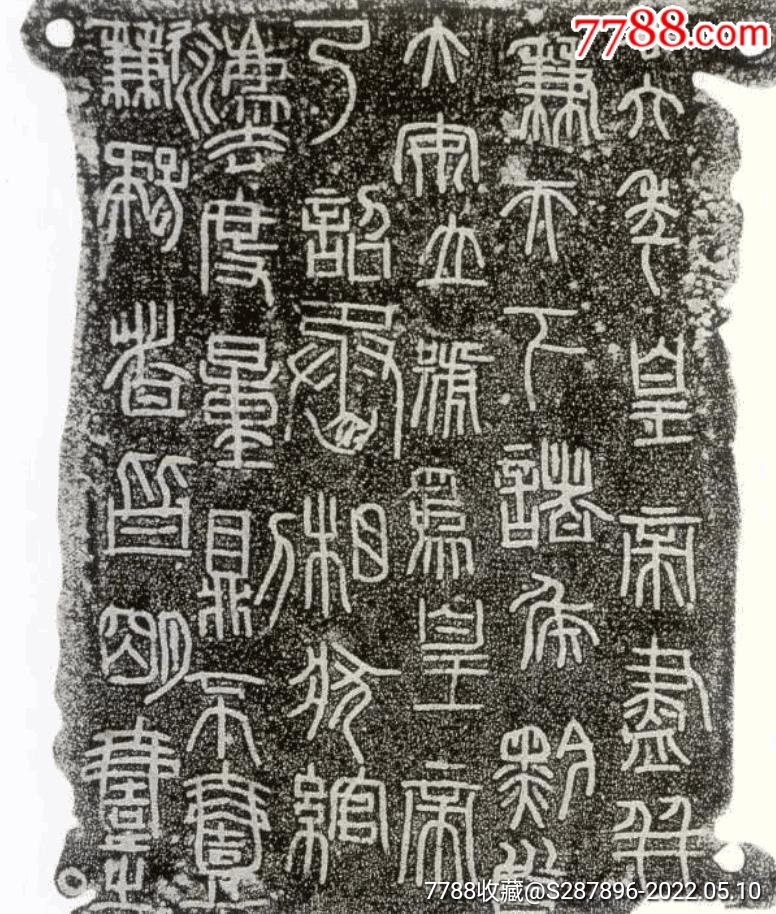 7788.com
廿六年皇帝盡并
兼天下諸侯黔首
大安立號為皇帝
乃詔丞相狀綰
灋度量則不壹
歉疑者皆明壹之
7788收藏@S287896-2022.05.10